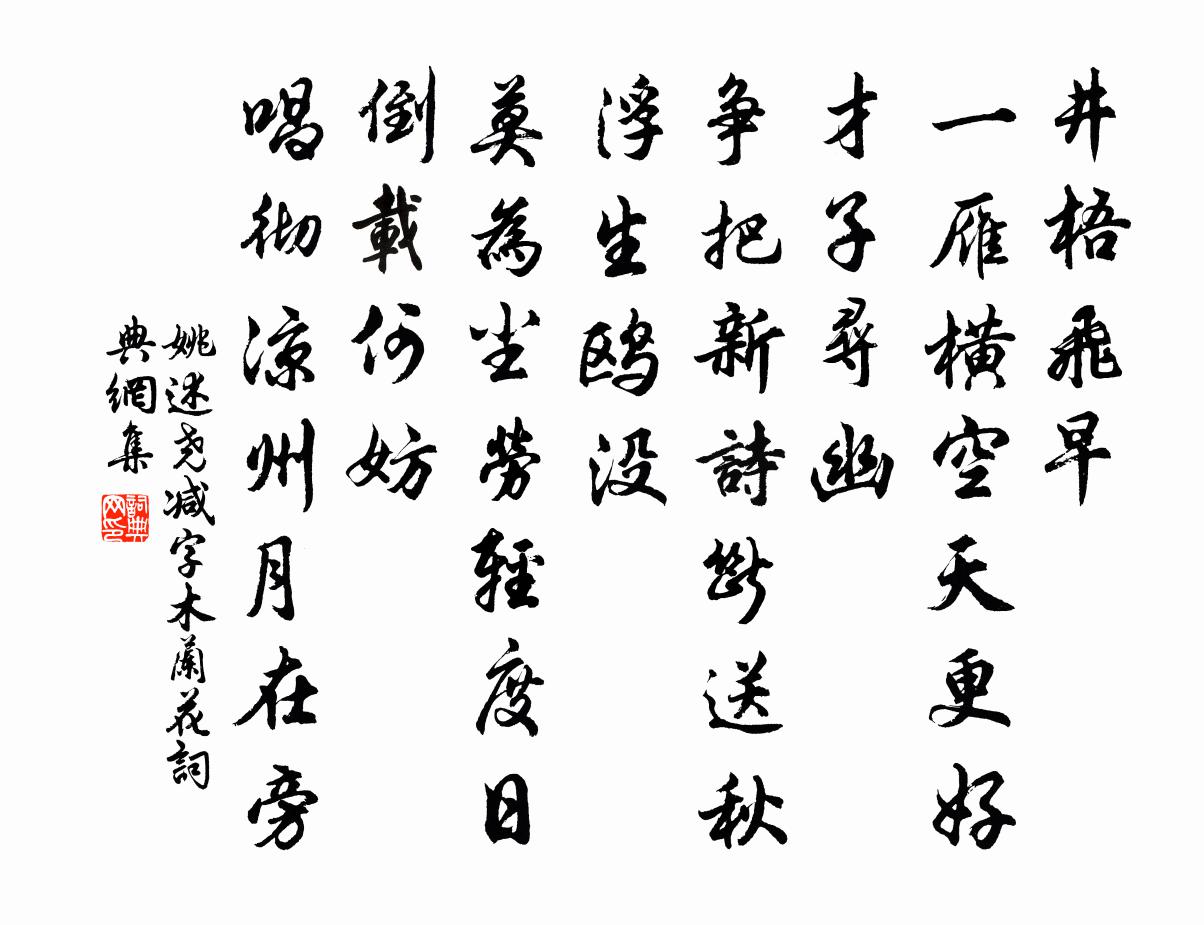 井梧飛早
一雁橫空天更好
才子尋幽
争把新詩斷送秋
浮生鸥没
莫為尘勞輕度日
倒載何妨
唱彻凉州月在旁
姚述尧减字木蘭花詞
典網集
詞典网印